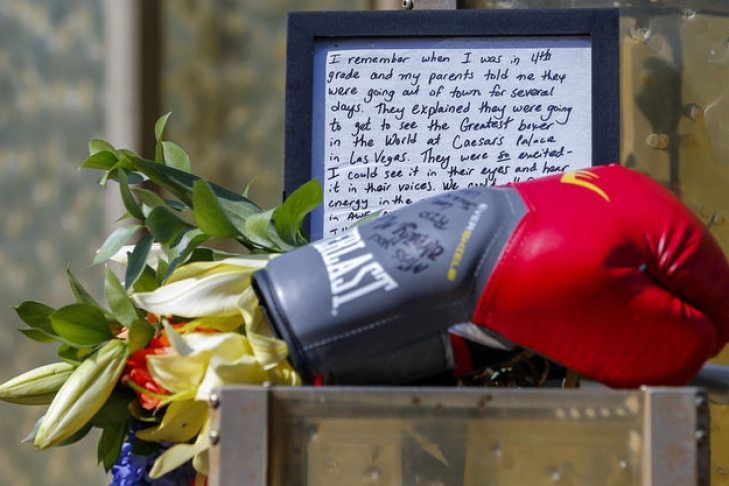 I remember when I was in 4th
grade and my parents told me they
were going out of town for several
days. They explained they were going
to get to see the Greatest boxer
in the World at Caesar's Palace
in Las Vegas. They were so excited-
I could see it in their eyes and hear
it in their voices. We
energy in the
in
EVERSHIELD
LAST